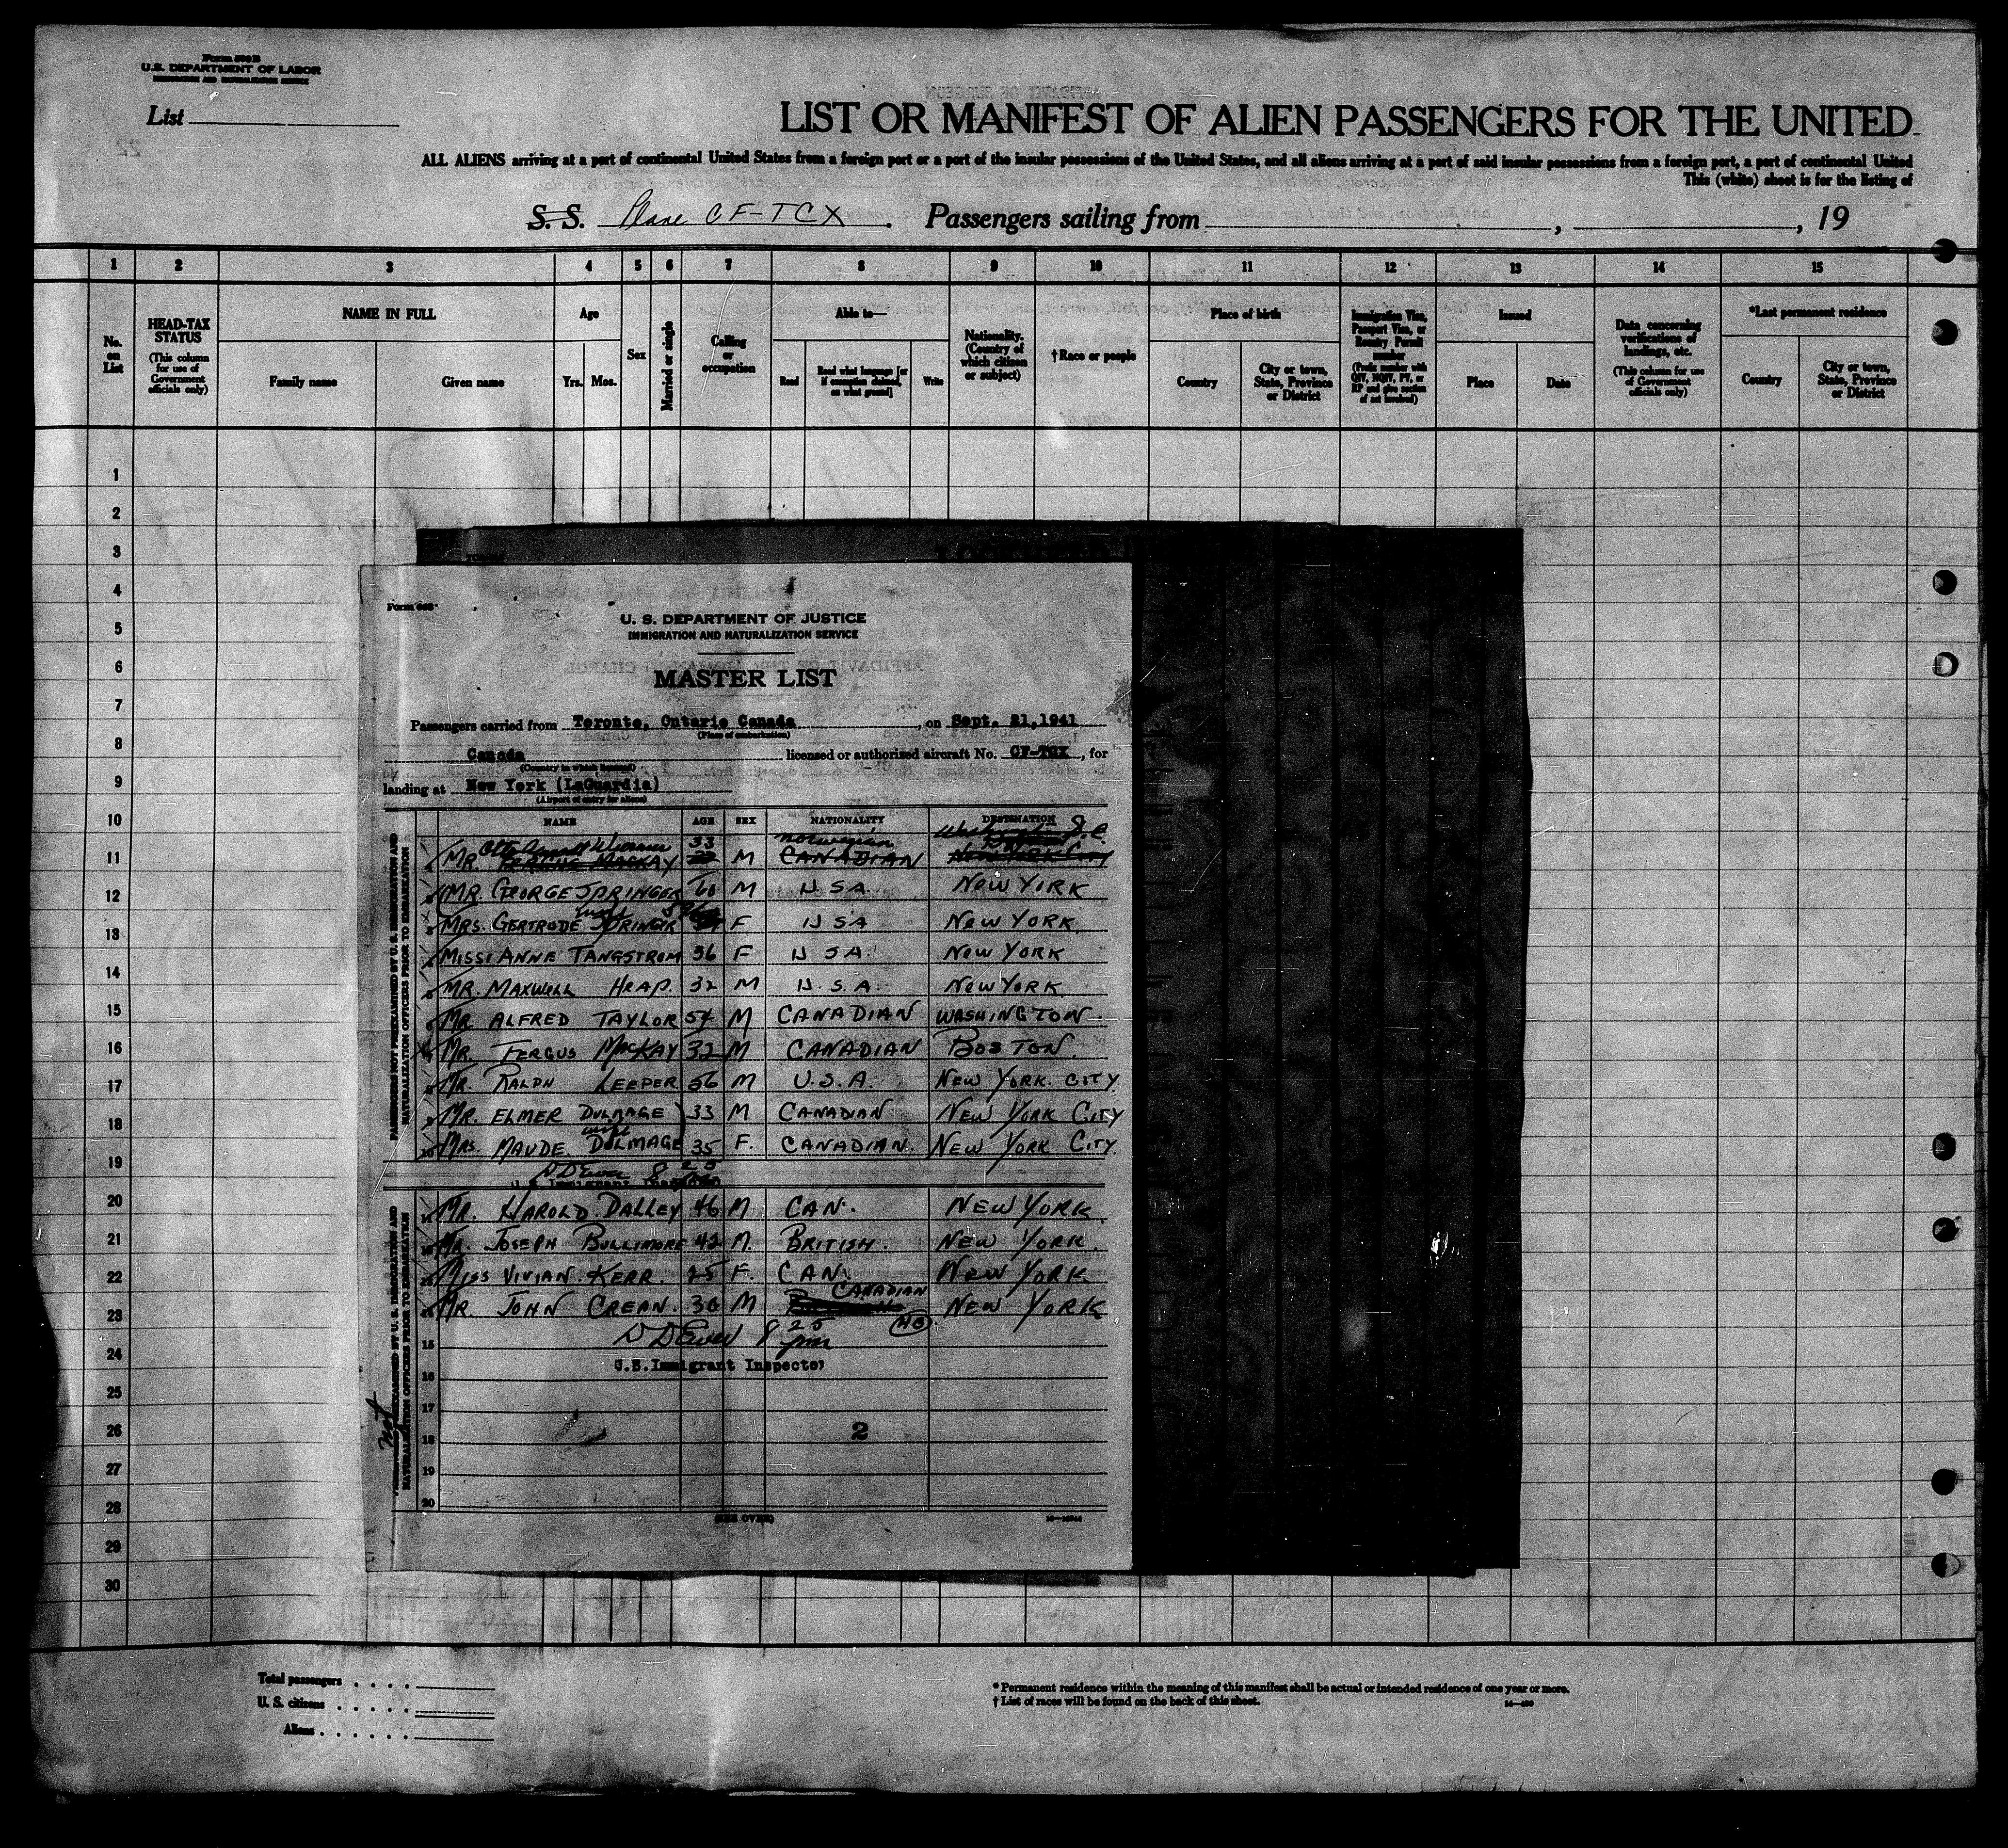 U.S. DEPARTMENT OF LABOR
IMMIGRATION AND NATURALIZATION SERVICE
List
LIST OR MANIFEST OF ALIEN PASSENGERS FOR THE UNITED
ALL ALIENS arriving at a port of continental United States from a foreign port or a port of the insular possessions of the United States, and all aliens arriving at a port of said insular possessions from a foreign port, a port of continental United
This (white) sheet is for the listing of
S. S. Plane CF-TCX. Passengers sailing from , , 19
1 2 3 4 5 6 7 8 9 10 11 12 13 14 15
No. on List
HEAD-TAX STATUS (This column for use of Government officials only)
NAME IN FULL
Family name Given name
Age
Yrs. Mos.
Sex
Married or single
Calling or occupation
Able to—
Read Read what language [or if exemption claimed, on what ground] Write
Nationality. (Country of which citizen or subject)
†Race or people
Place of birth
Country City or town, State, Province or District
Immigration Visa, Passport Visa, or Reentry Permit number (Prefix number with QIV, NQIV, PV, or RP and give section of act involved)
Issued
Place Date
Data concerning verifications of landings, etc. (This column for use of Government officials only)
*Last permanent residence
Country City or town, State, Province or District
1
2
3
4
5
6
7
8
9
10
11
12
13
14
15
16
17
18
19
20
21
22
23
24
25
26
27
28
29
30
U. S. DEPARTMENT OF JUSTICE
IMMIGRATION AND NATURALIZATION SERVICE
MASTER LIST
Passengers carried from Toronto, Ontario Canada, on Sept. 21,1941
(Place of embarkation)
Canada licensed or authorized aircraft No. CF-TCX, for
(Country in which licensed)
landing at New York (LaGuardia)
(Airport of entry for aliens)
NAME AGE SEX NATIONALITY DESTINATION
PASSENGERS NOT PREEXAMINED BY U. S. IMMIGRATION AND NATURALIZATION OFFICERS PRIOR TO EMBARKATION
33 Norwegian Washington D.C.
MR. MACKAY M CANADIAN New York City
MR. GEORGE SPRINGER 60 M U S A New York
wife
MRS. GERTRUDE SPRINGER F U S A New York
MISS ANNE TANGSTROM 36 F U S A New York
MR. MAXWELL HEAP. 32 M U.S.A. New York
MR ALFRED TAYLOR 54 M CANADIAN WASHINGTON
MR. FERGUS MACKAY 32 M CANADIAN BOSTON.
MR. RALPH LEEPER 56 M U.S.A. NEW YORK CITY
MR. ELMER DULMAGE 33 M CANADIAN NEW YORK CITY
wife
MRS. MAUDE DULMAGE 35 F. CANADIAN. NEW YORK CITY.
8 25
U.S. Immigrant Inspector
MR. HAROLD DALLEY 46 M CAN. NEW YORK
MR. JOSEPH BULLIMORE 42 M. BRITISH. NEW YORK.
MISS VIVIAN KERR. 25 F. CAN. NEW YORK
CANADIAN
MR JOHN CREAN. 30 M NEW YORK
8 25 pm
15
U.S.Immigrant Inspector
16
17
18 2
19
20
not PREEXAMINED BY U. S. IMMIGRATION AND NATURALIZATION OFFICERS PRIOR TO EMBARKATION
(SEE OVER)
Total passengers
U. S. citizens
Aliens
* Permanent residence within the meaning of this manifest shall be actual or intended residence of one year or more.
† List of races will be found on the back of this sheet.